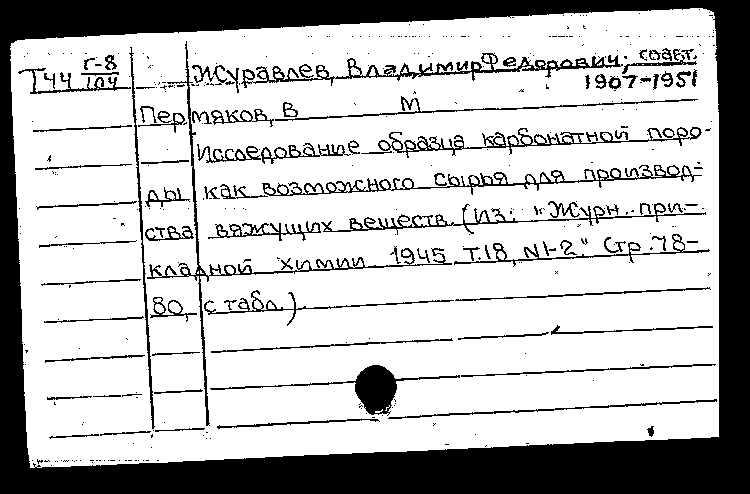 Г-8
Т44 104
Журавлев, Владимир Федорович, соавт.
1907-1951
Пермяков, В М
Исследование образца карбонатной поро-
ды как возможного сырья для производ-
ства вяжущих веществ. (Из: "Журн. при-
кладной химии 1945 Т.18, N1-2." Стр. 78-
80, с табл.)